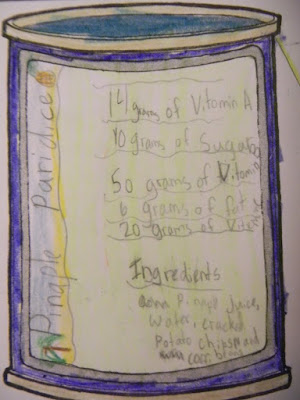 Pinaple Paridice
14 grams of Vitamin A
40 grams of Sugar
50 grams of Vitamin
6 grams of fat
20 grams of Vitem
Ingredients
Pinaple Juice,
Water, cracked
Potato chips and